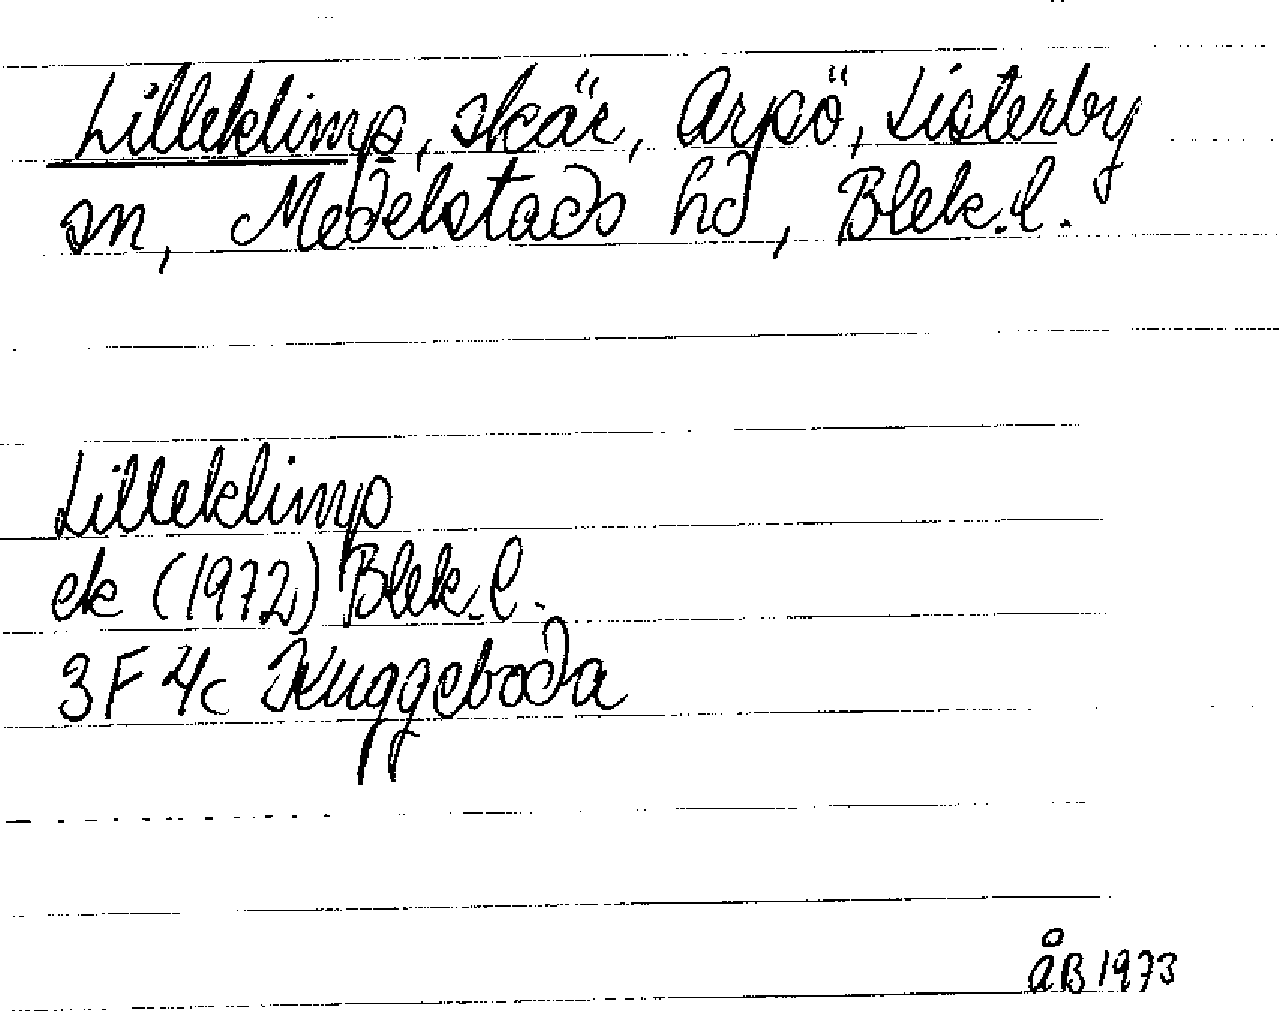 Lilleklimp, skär, Arpö, Listerby
sn, Medelstads hd, Blek. l.
Lilleklimp
ek (1972) Blek. l.
3F 4c Kuggeboda
ÅB 1973